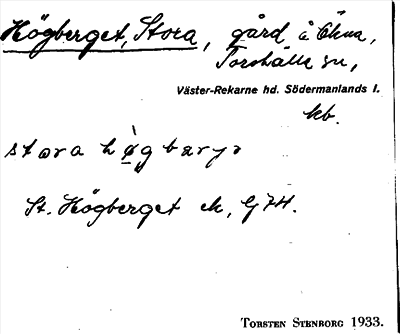 Högberget, Stora, gård å Öhna,
Torshälla sn,
Väster-Rekarne hd. Södermanlands l.
kb.
stora högbarja
St. Högberget ek, GJH.
TORSTEN STENBORG 1933.